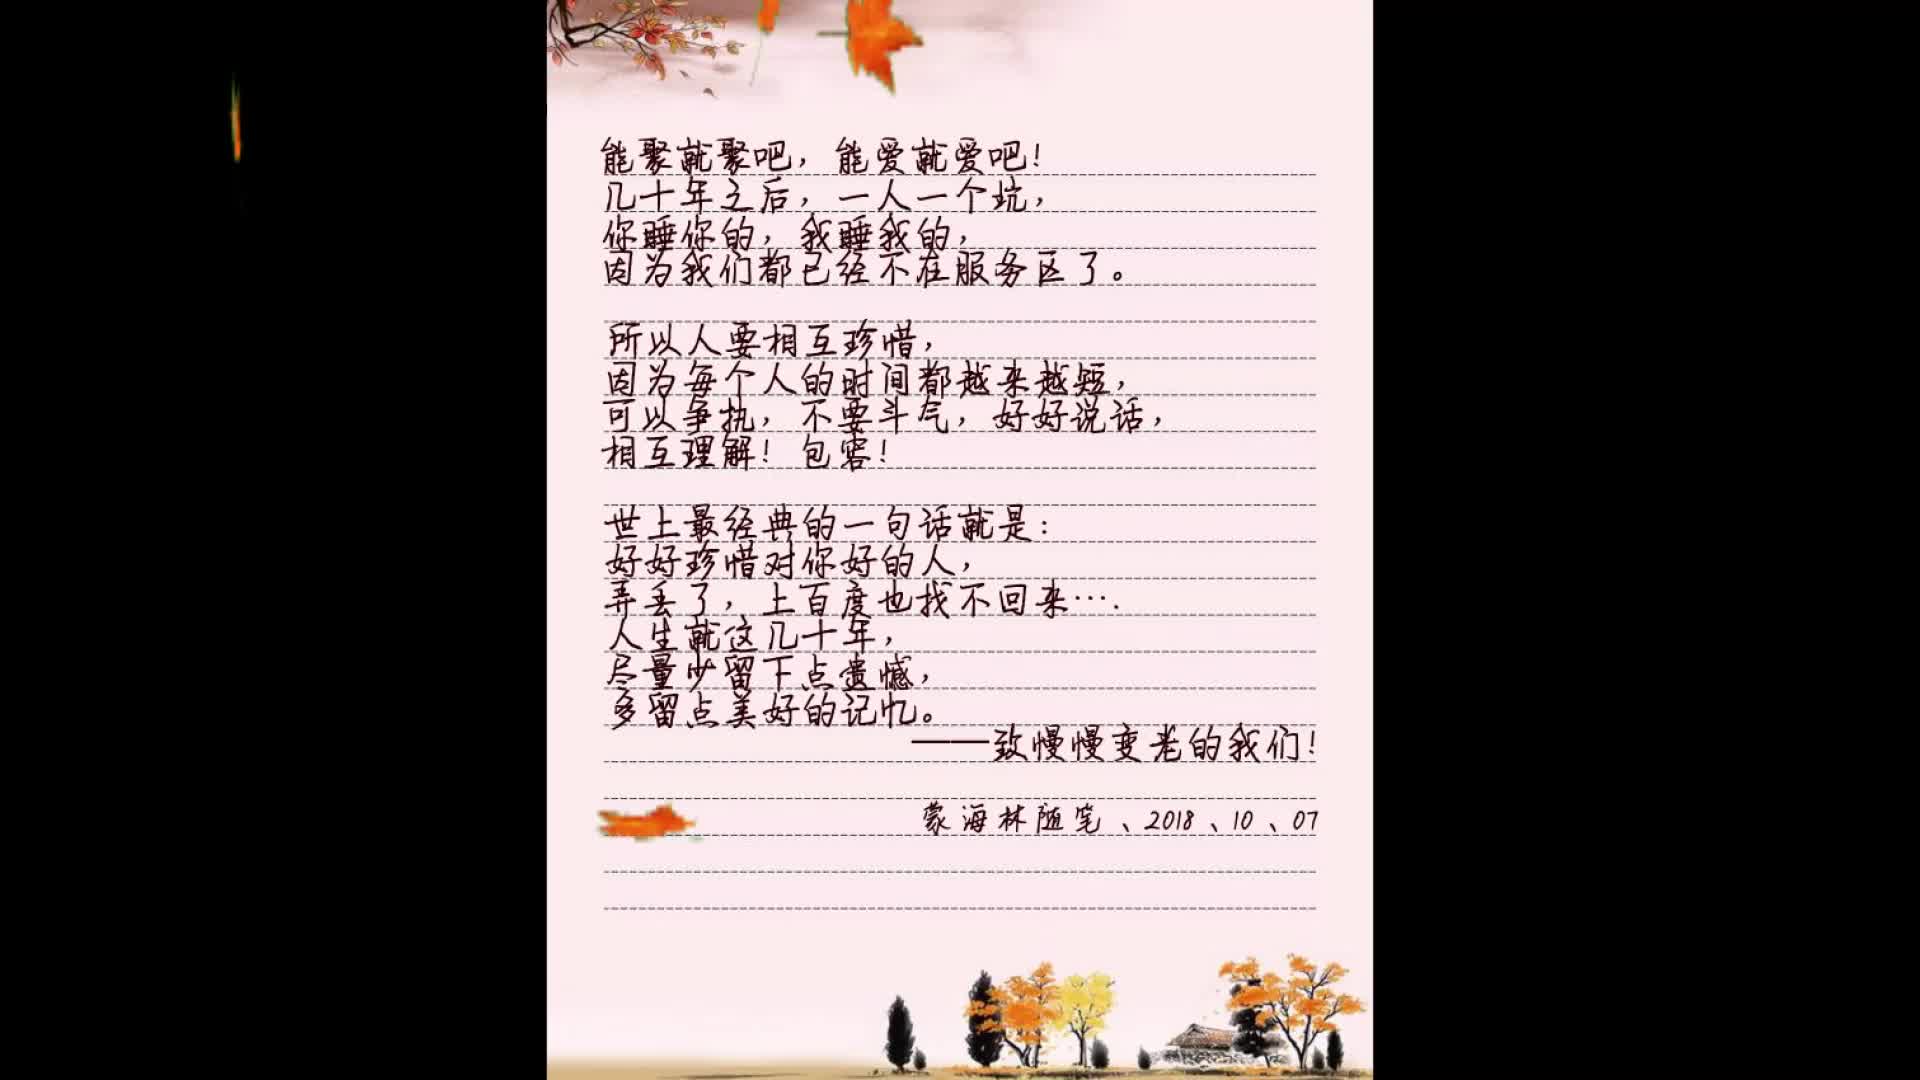 能聚就聚吧，能爱就爱吧！
几十年之后，一人一个坑，
你睡你的，我睡我的，
因为我们都已经不在服务区了。
所以人要相互珍惜，
因为每个人的时间都越来越短，
可以争执，不要斗气，好好说话，
相互理解！包容！
世上最经典的一句话就是：
好好珍惜对你好的人，
弄丢了，上百度也找不回来….
人生就这几十年，
尽量少留下点遗憾，
多留点美好的记忆。
——致慢慢变老的我们！
蒙海林随笔、2018、10、07